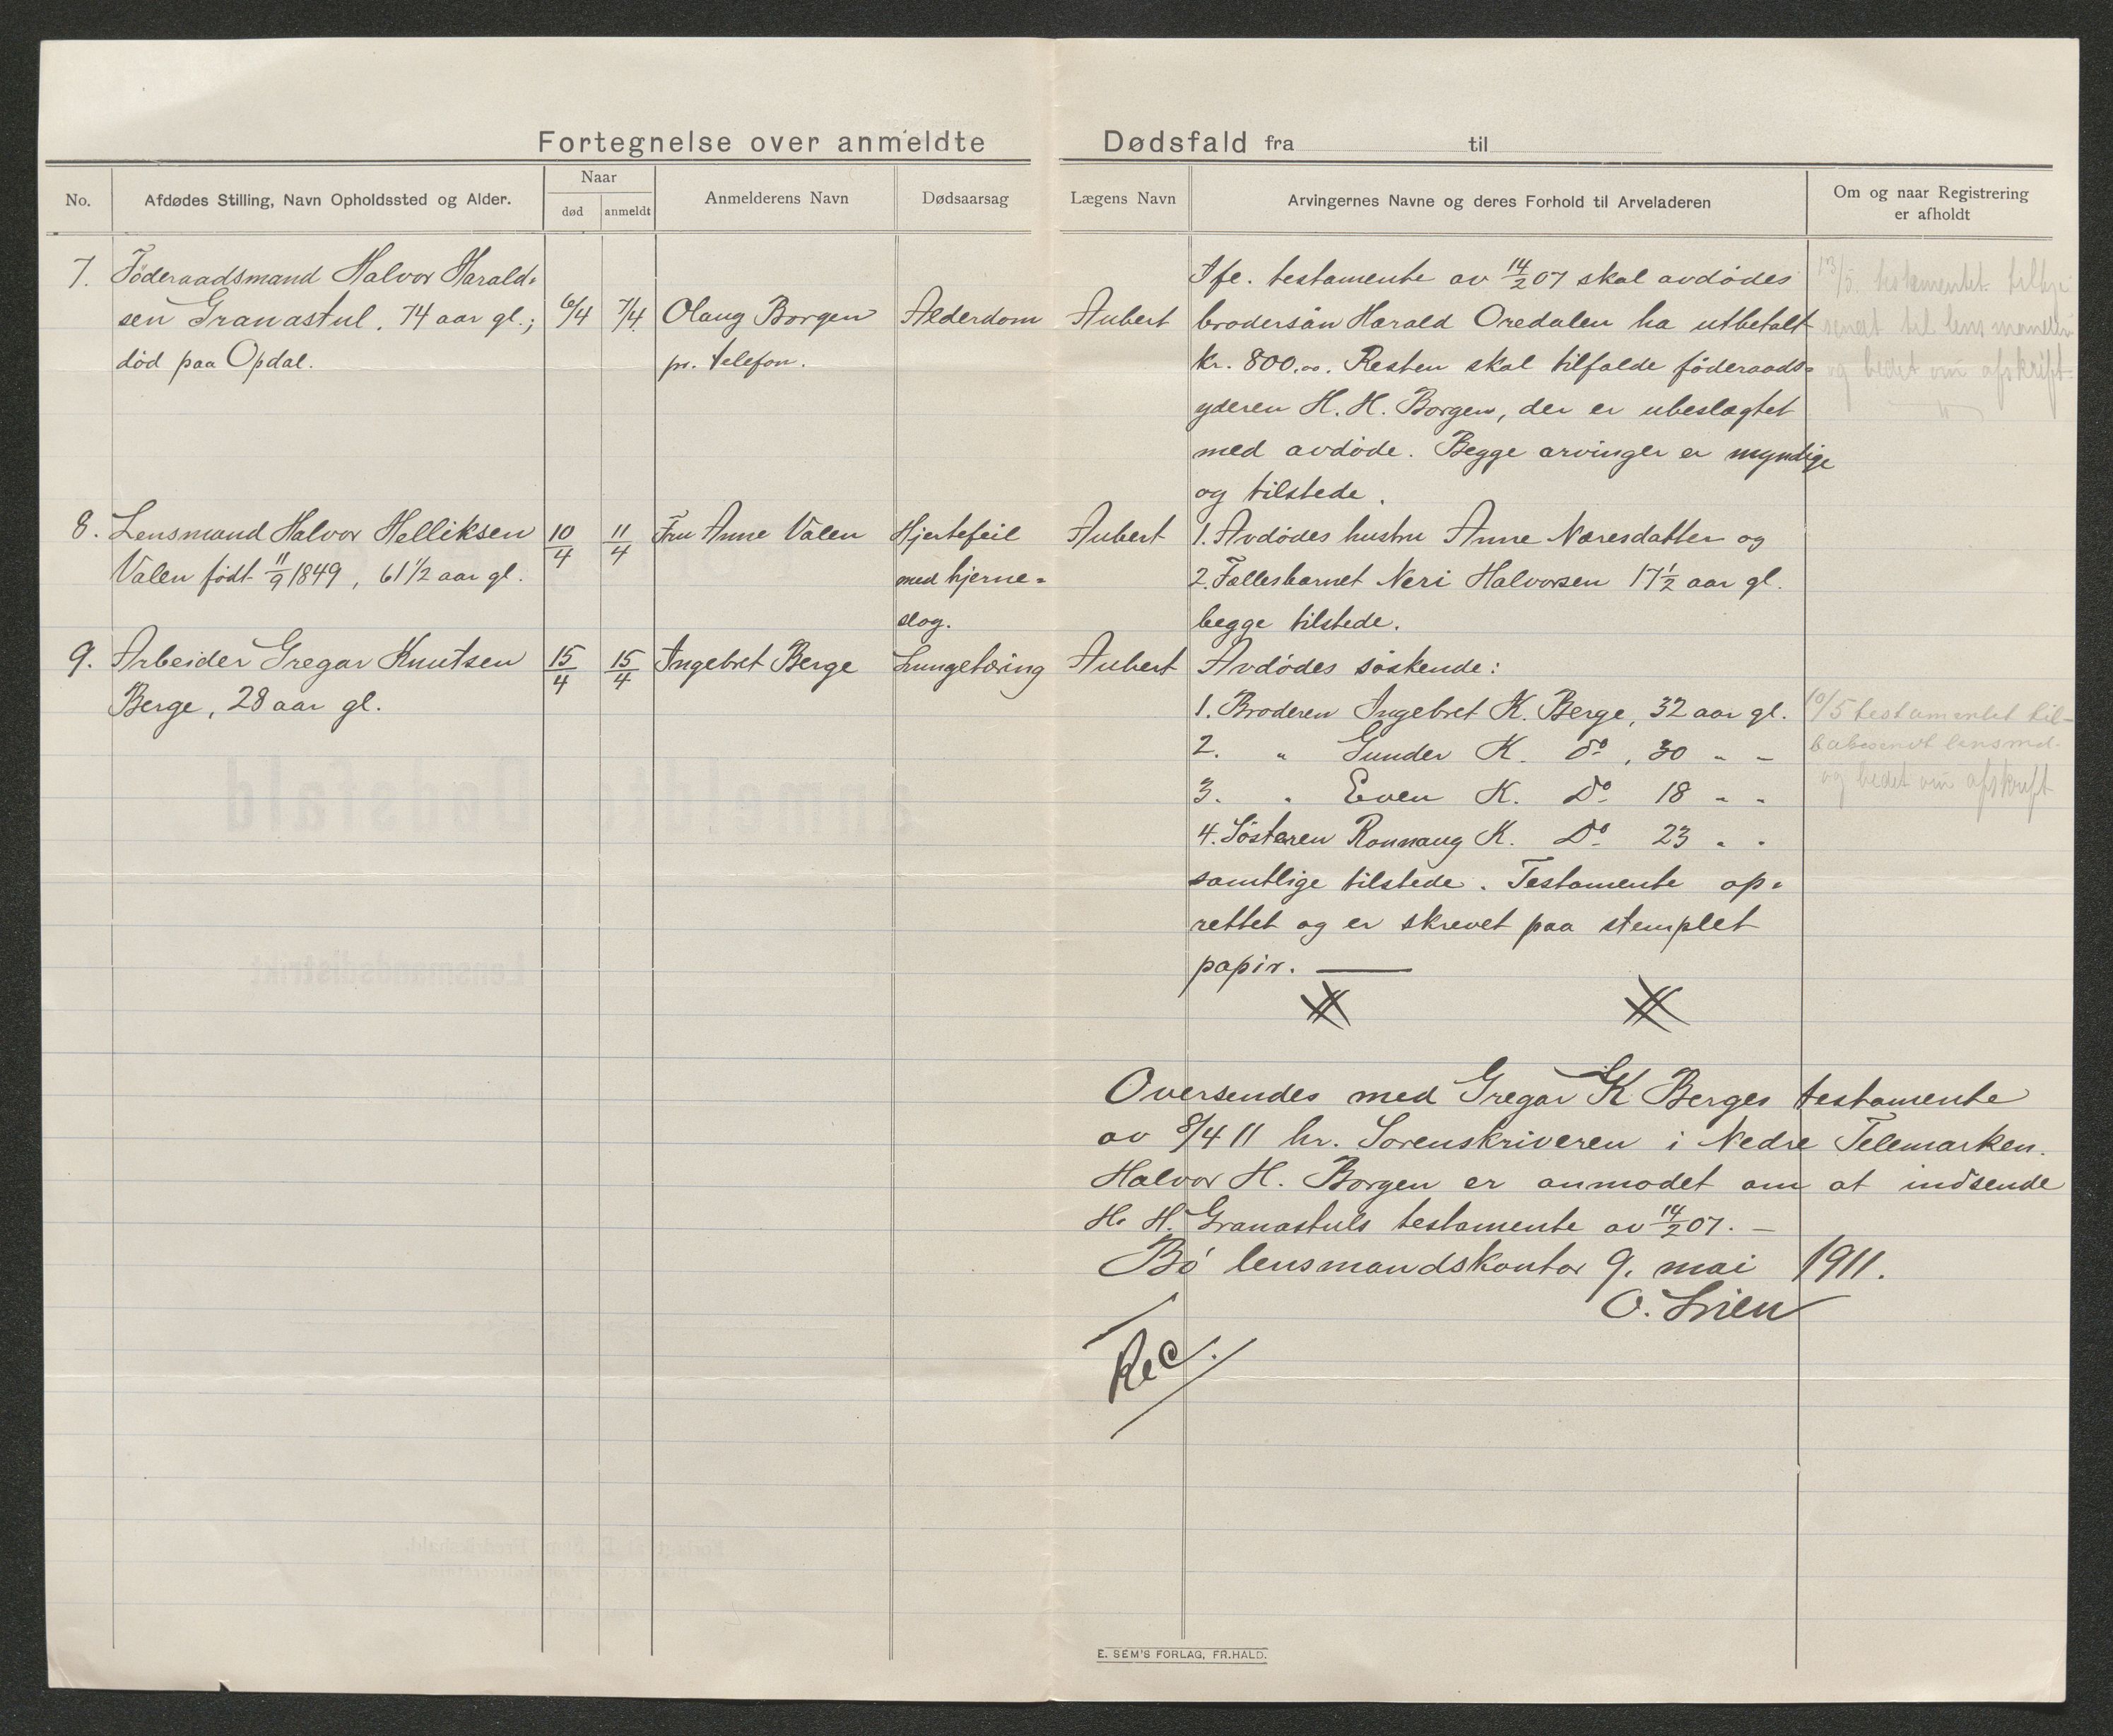 Fortegnelse over anmeldte Dødsfald fra til
No.
Afdødes Stilling, Navn Opholdssted og Alder.
Naar
død
anmeldt
Anmelderens Navn
Dødsaarsag
Lægens Navn
Arvingernes Navne og deres Forhold til Arveladeren
Om og naar Registrering
er afholdt
7. Föderaadsmand Halvor Harald-
sen Granastul, 74 aar gl.;
död paa Opdal.
6/4
7/4
Olaug Borgen
pr. telefon.
Alderdom
Aubert
Ifl. testamente av 14/2 07 skal avdödes
brodersön Harald Oredalen ha utbetalt
kr. 800.00. Resten skal tilfalde föderaads-
yderen H. H. Borgen, der er ubeslagtet
med avdöde. Begge arvinger er myndige
og tilstede.
13/5. testamentet
sendt til lensmanden
og bedet om afskrift
8. Lensmand Halvor Helliksen
Valen födt 11/9 1849, 61 1/2 aar gl.
10/4
11/4
Fru Anne Valen
Hjertefeil
med hjerne=
slag.
Aubert
1. Avdödes hustru Anne Næresdatter og
2. Fællesbarnet Neri Halvorsen 17 1/2 aar gl.
begge tilstede.
9. Arbeider Gregar Knutsen
Berge, 28 aar gl.
15/4
15/4
Ingebret Berge
Lungetæring
Aubert
Avdödes söskende:
1. Broderen Ingebret K. Berge, 32 aar gl.
2. " Gunder K. do, 30 " "
3. " Even K. Do 18 " "
4. Sösteren Rannaug K. Do 23 " "
samtlige tilstede. Testamente op-
rettet og er skrevet paa stemplet
papir.
10/5 testamentet til-
bagesendt lensmd.
og bedet om afskrift
Oversendes med Gregar K Berges testamente
av 8/4 11 hr. Sorenskriveren i Nedre Telemarken.
Halvor H. Borgen er anmodet om at indsende
H. H. Granastuls testamente av 14/2 07. —
Bö lensmandskontor 9. mai 1911.
O. Lien
Rec.
E. SEM'S FORLAG, FR.HALD.